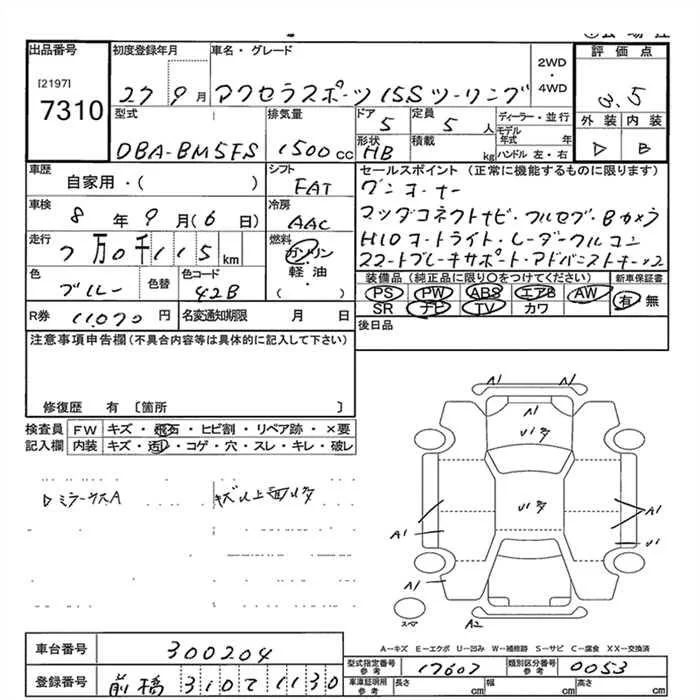 出品番号
[2197]
7310
初度登録年月
27 9月
車名・グレード
アクセラスポーツ 15S ツーリング
2WD
・
4WD
評価点
3.5
型式
DBA-BM5FS
排気量
1500cc
ドア
5
定員
5人
形状
HB
積載
kg
ディーラー・並行
モデル年式 年
ハンドル 左・右
外装 内装
B
車歴
自家用・( )
シフト
FAT
車検
8年9月(6日)
冷房
AAC
走行
7万0千115km
燃料
ガソリン
軽油
( )
色
ブルー
色替
色コード
42B
R券
11,070円
名変通知期限 月 日
セールスポイント (正常に機能するものに限ります)
ワンオーナー
マツダコネクトナビ・フルセグ・Bカメラ
HIDオートライト・レーダークルコン
スマートブレーキサポート・アドバンストキー×2
装備品(純正品に限り○をつけてください)
新車保証書
PS PW ABS エアB AW
有 無
SR ナビ TV カワ
後日品
注意事項申告欄(不具合内容等は具体的に記入して下さい)
修復歴 有 〔箇所 〕
検査員記入欄
FW キズ・飛石・ヒビ割・リペア跡・×要
内装 キズ・汚レ・コゲ・穴・スレ・キレ・破レ
ミラーウスA
キズ 以上
A1 A1
A1
A1
A1
A1
A2
A-キズ E-エクボ U-凹み W-補修跡 S-サビ C-腐食 XX-交換済
車台番号
300204
登録番号
前橋 310 1130
型式指定番号
参考
17607
類別区分番号
参考
0053
車庫証明用
参考
長さ cm 幅 cm 高さ cm